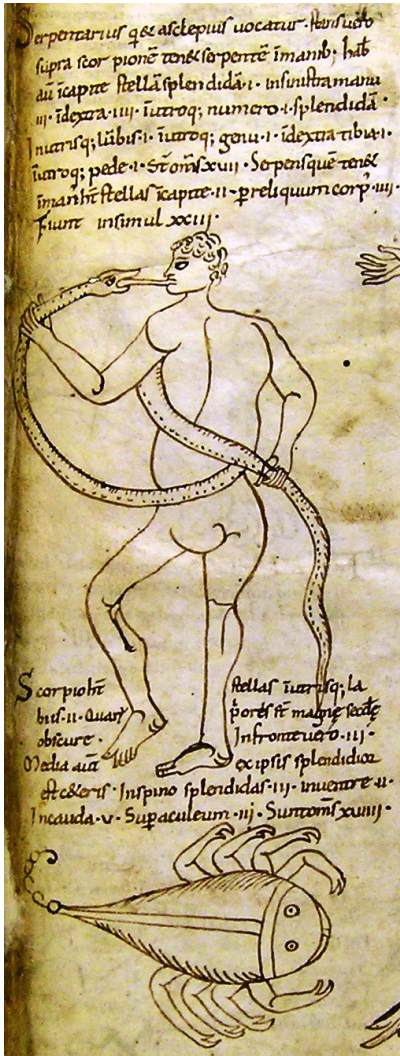 Serpentarius q& asclepius vocatur. stans
supra scorpionē ten& serpentē ī manib; hab&
aū ī capite stellā splendidā .i. in sinistra manu
.iii. ī dextra .iiii. ī utroq; numero .i. splendidā
In utrisq; lūbis .i. ī utroq; genu .i. ī dextra tibia .i.
ī utroq; pede .i. St̄ oms̄ xvii. Serpens quē ten&
ī manib; ht̄ stellas ī capite .ii. p reliquum corp' .iiii.
Fiunt insimul xxiii.
Scorpio ht̄ stellas ī utrisq; la
biis .ii. Quarū p̄ores st̄ magnę secdę
obscure. In fronte vero .iii.
Media aūt ex ipsis splendidior
est c&eris. In spino splendidas .iii. in ventre .ii.
In cauda .v. Sup aculeum .iij. Sunt oms̄ xviiii.